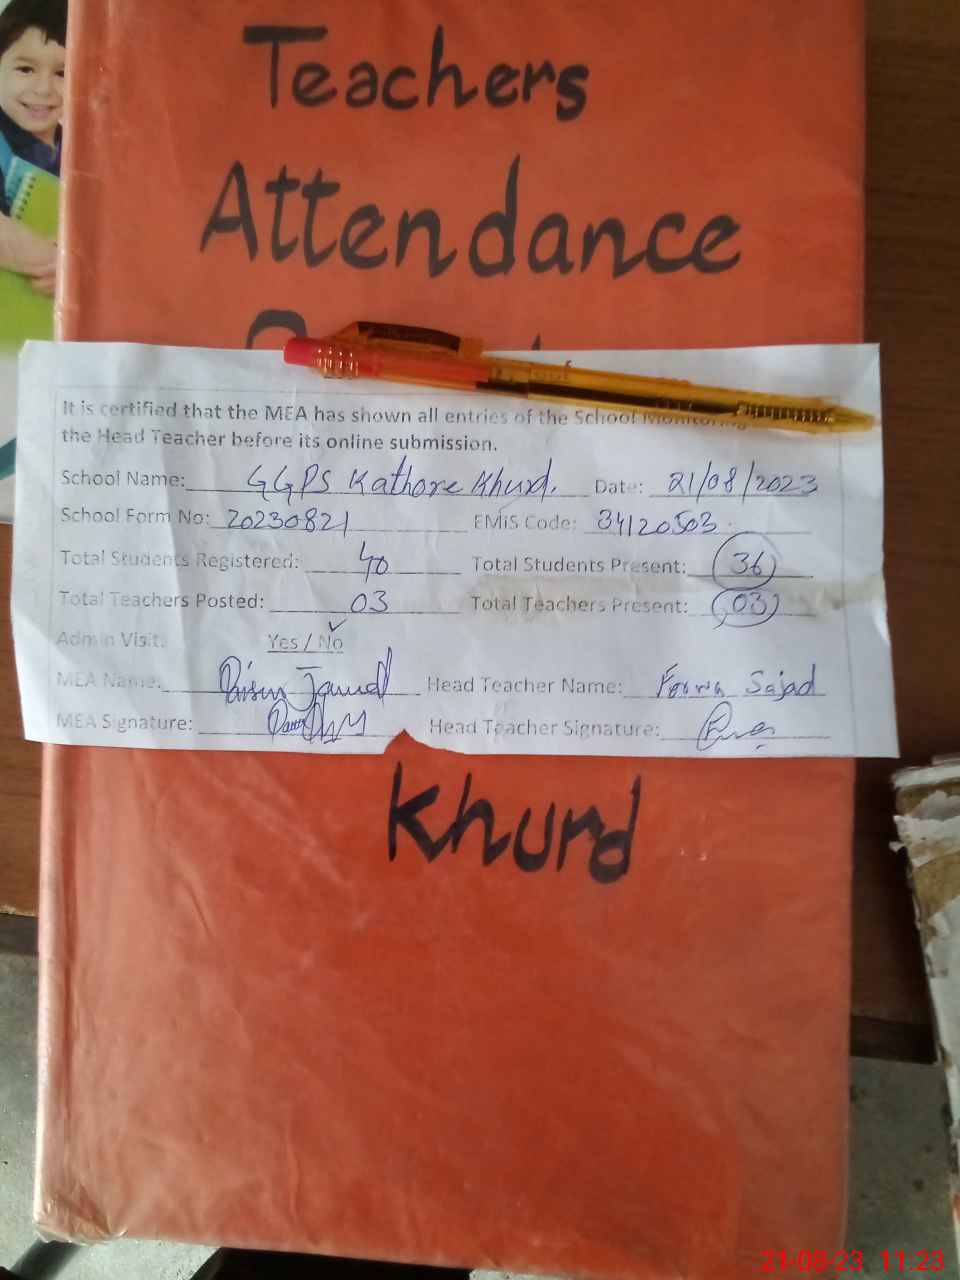 Teachers
Attendance
It is certified that the MEA has shown all entries of the School Monitoring
the Head Teacher before its online submission.
School Name: GGPS Kathore Khurd. Date: 21/08/2023
School Form No: 20230821 EMIS Code: 34120503
Total Students Registered: 40 Total Students Present: 36
Total Teachers Posted: 03 Total Teachers Present: 03
Admin Visit: Yes / No
MEA Name: Head Teacher Name: Sajad
MEA Signature: Head Teacher Signature:
Khurd
21-08-23 11:23